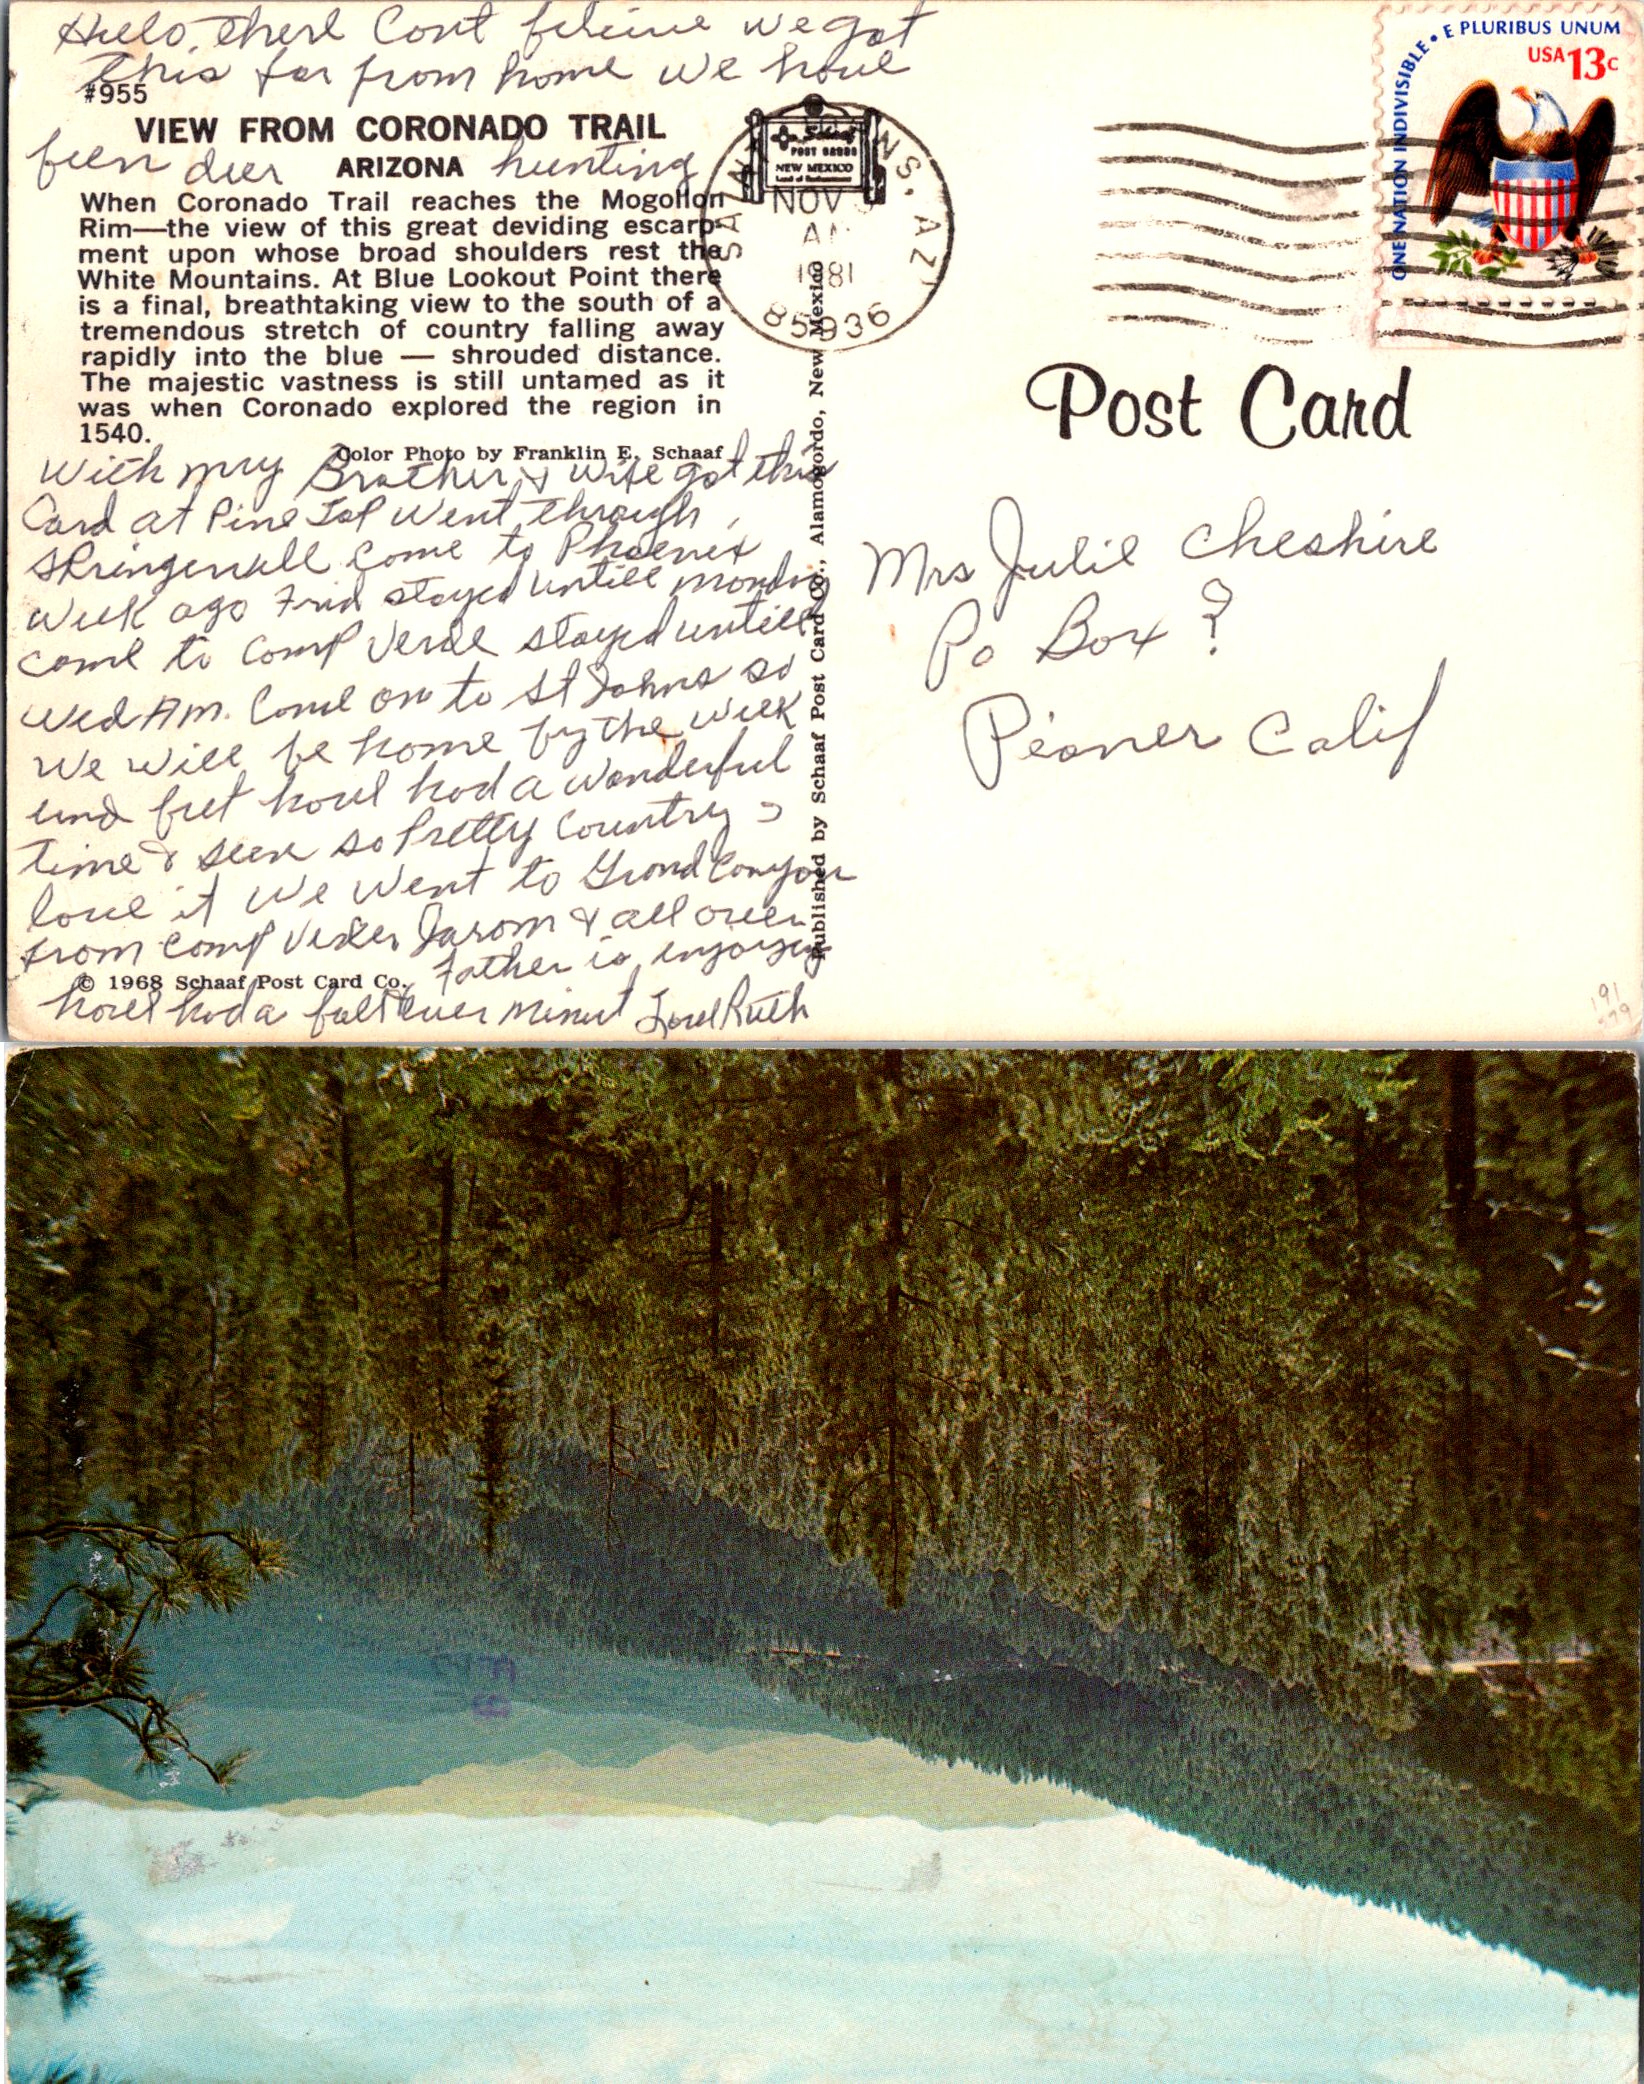 Hello, there Cont beleive we got
This far from home we have
#955
VIEW FROM CORONADO TRAIL
been deer ARIZONA hunting
When Coronado Trail reaches the Mogollon
Rim—the view of this great deviding escarp-
ment upon whose broad shoulders rest the
White Mountains. At Blue Lookout Point there
is a final, breathtaking view to the south of a
tremendous stretch of country falling away
rapidly into the blue — shrouded distance.
The majestic vastness is still untamed as it
was when Coronado explored the region in
1540.
Color Photo by Franklin E. Schaaf
with my Brother & wife got this
Card at Pine Top went through
Springervill come to Phoenix
week ago Frid stayed untill monday
come to Comp Verde stayed untill
wed Am. Come on to St Johns so
we will be home by the week
end but have had a wonderful
time & seen so Pretty Country
love it we went to Grand Canyon
from Comp & all over
Father is enjoying
© 1968 Schaaf Post Card Co.
have had a ever minut Love Ruth
Schaaf
POST CARDS
NEW MEXICO
Land of Enchantment
SAINT JOHNS, AZ
NOV
AM
1981
85936
Published by Schaaf Post Card Co., Alamogordo, New Mexico
ONE NATION INDIVISIBLE • E PLURIBUS UNUM
USA 13c
Post Card
Mrs Julie Cheshire
Po Box ?
Pioner Calif
191